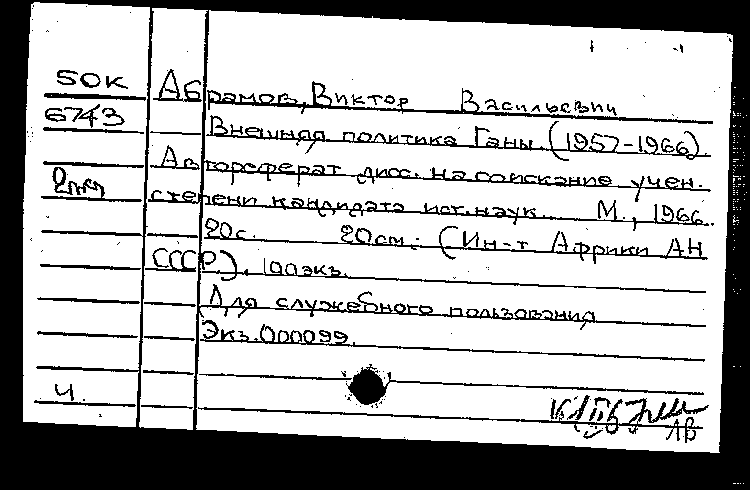 50К
6743
Абрамов, Виктор Васильевич
Внешняя политика Ганы. (1957-1966).
Автореферат дисс. на соискание учен.
степени кандидата ист. наук. М., 1966.
20с. 20см. (Ин-т Африки АН
СССР). 100экз.
Для служебного пользования
Экз. 000099.
Ч.